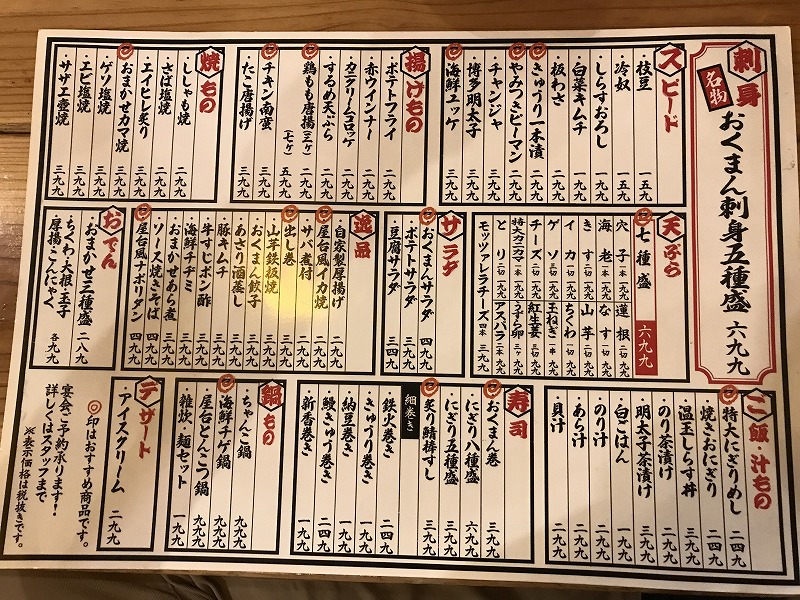 刺身
名物
おくまん刺身五種盛 六九九
スピード
・枝豆 一五九
・冷奴 一五九
・しらすおろし 一九九
・白菜キムチ 一九九
・板わさ 二九九
◎きゅうり一本漬 二九九
◎やみつきピーマン 二九九
・チャンジャ 二九九
・博多明太子 三九九
◎海鮮ユッケ 三九九
揚げもの
・ポテトフライ 二九九
・赤ウインナー 二九九
・カニクリームコロッケ 二九九
・するめ天ぷら 二九九
◎鶏もも唐揚(三ケ) 二九九
(七ケ) 五九九
◎チキン南蛮 三九九
・たこ唐揚げ 三九九
焼もの
・ししゃも焼 二九九
・さば塩焼 二九九
・エイヒレ炙り 三九九
◎おまかせカマ焼 三九九
・ゲソ塩焼 三九九
・エビ塩焼 三九九
・サザエ壺焼 三九九
天ぷら
◎七種盛 六九九
穴子 一本 二九九
海老 二本 一九九
きす 二切 一九九
イカ 二切 一九九
ゲソ 三切 一九九
チーズ 二切 一九九
特大カニカマ 一本 一九九
とり 二切 一九九
モッツァレラチーズ 四本 三九九
蓮根 二切 九九
なす 二切 九九
山芋 一切 九九
ちくわ 二切 九九
玉ねぎ 一串 九九
紅生姜 一切 九九
うずら卵 一ケ 九九
アスパラ 二本 九九
サラダ
◎おくまんサラダ 四九九
・ポテトサラダ 三九九
・豆腐サラダ 三四九
逸品
・自家製厚揚げ 二九九
◎屋台風イカ焼 二九九
・サバ煮付 二九九
◎出し巻き 三九九
・山芋鉄板焼 三九九
・おくまん餃子 三九九
・あさり酒蒸し 三九九
・豚キムチ 三九九
・牛すじポン酢 三九九
・海鮮チヂミ 三九九
・おまかせあら煮 三九九
・ソース焼きそば 四九九
◎屋台風ナポリタン 四九九
おでん
・おまかせ三種盛 二八九
・ちくわ・大根・玉子
厚揚・こんにゃく 各九九
ご飯・汁もの
◎特大にぎりめし 二四九
・焼きおにぎり 二四九
・温玉しらす丼 三九九
・のり茶漬け 二九九
・明太子茶漬け 三九九
・白ごはん 一九九
・のり汁 二九九
・あら汁 二九九
・貝汁 二九九
寿司
◎おくまん巻 三九九
・にぎり八種盛 六九九
・にぎり五種盛 三九九
◎炙り鯖棒すし 三九九
細巻き
・鉄火巻き 二四九
・きゅうり巻き 一九九
・納豆巻き 一九九
・鰻きゅう巻き 二四九
・新香巻き 一九九
鍋もの
・ちゃんこ鍋 九九九
◎海鮮チゲ鍋 九九九
・屋台とんこつ鍋 九九九
・雑炊・麺セット 一九九
デザート
・アイスクリーム 二九九
◎印はおすすめ商品です。
宴会ご予約承ります!
詳しくはスタッフまで
※表示価格は税抜きです。